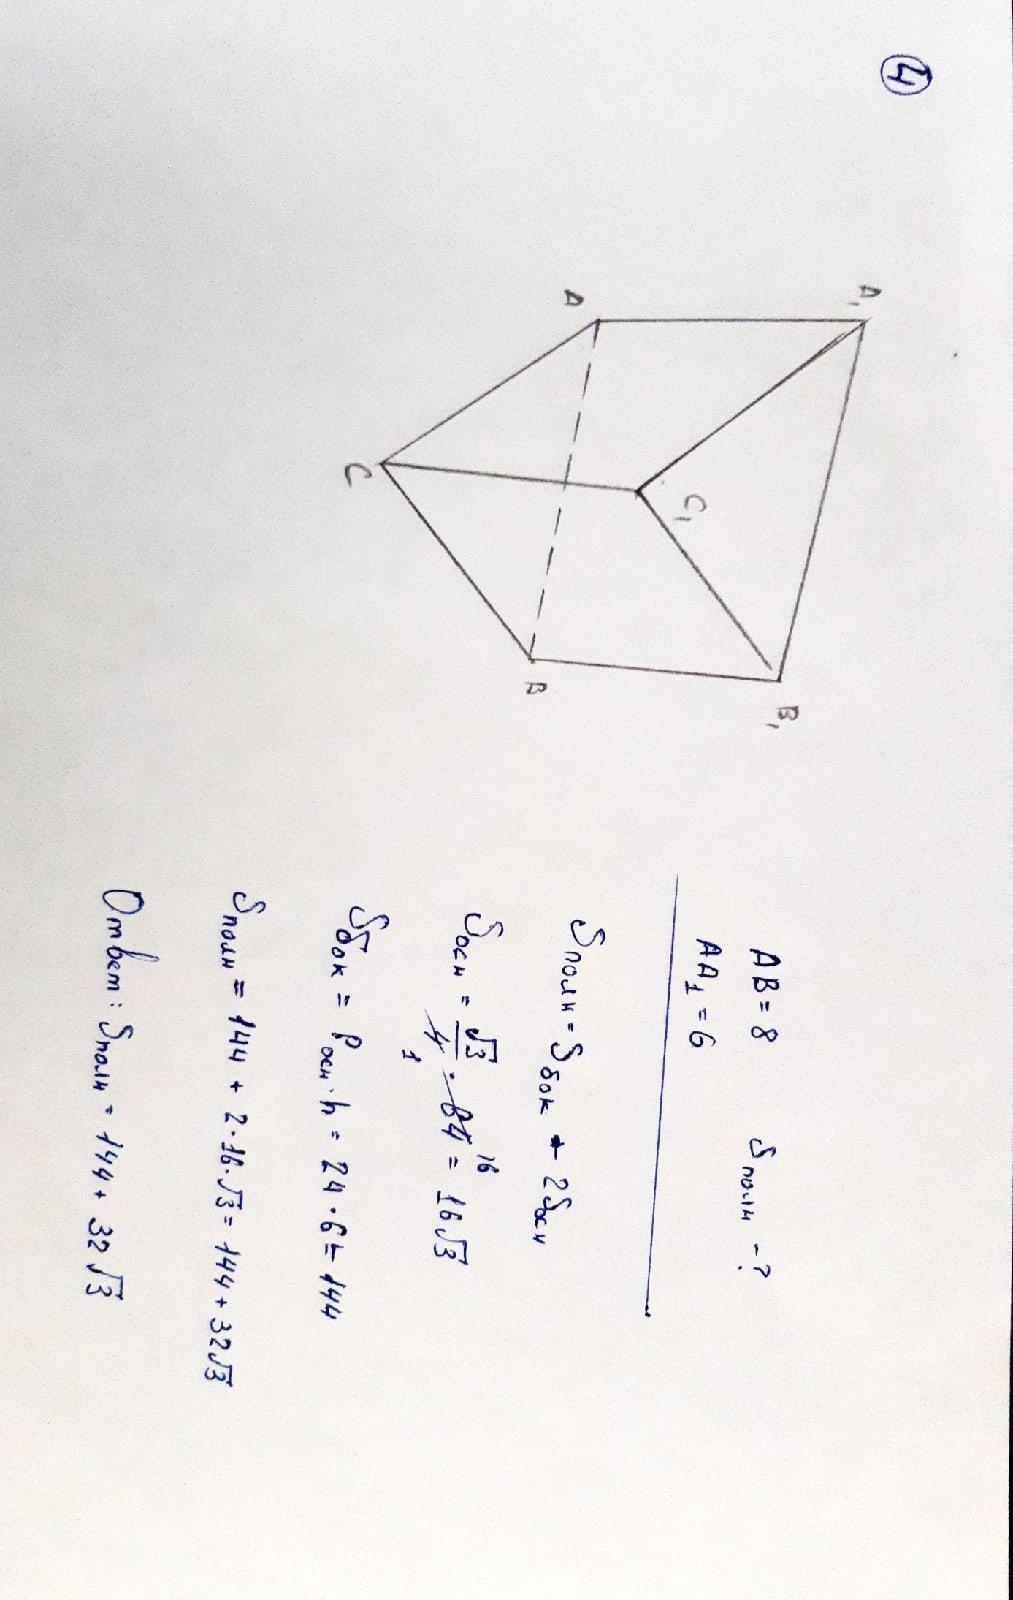 4
A₁
B₁
C₁
A
B
C
AB = 8 Sполн -?
AA₁ = 6
Sполн = Sбок + 2Sосн
Sосн = √3/4 · 64 = 16√3
1 16
Sбок = Pосн · h = 24 · 6 = 144
Sполн = 144 + 2 · 16 · √3 = 144 + 32√3
Ответ: Sполн = 144 + 32√3